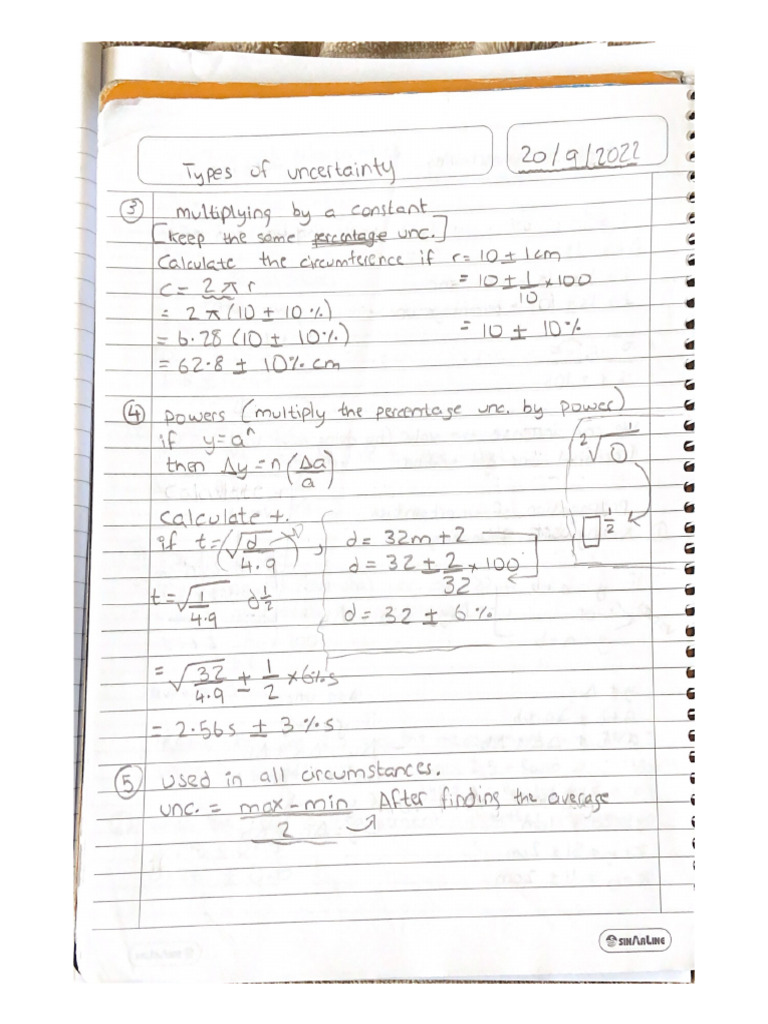 Types of uncertainty
20/9/2022
③ multiplying by a constant
[keep the same percentage unc.]
Calculate the circumference if r = 10 ± 1cm
C = 2πr = 10 ± 1/10 × 100
= 2π(10 ± 10%)
= 6.28 (10 ± 10%) = 10 ± 10%
= 62.8 ± 10% cm
④ powers (multiply the percentage unc. by power)
if y = aⁿ
then Δy = n(Δa/a)
²√0¹
□^1/2
Calculate t.
if t = (√d/4.9), d = 32m ± 2
d = 32 ± 2/32 × 100
t = √1/4.9 d^1/2 d = 32 ± 6%
= √32/4.9 ± 1/2 × 6% s
= 2.56s ± 3% s
⑤ used in all circumstances.
unc. = max - min / 2 After finding the average
SINARLINE